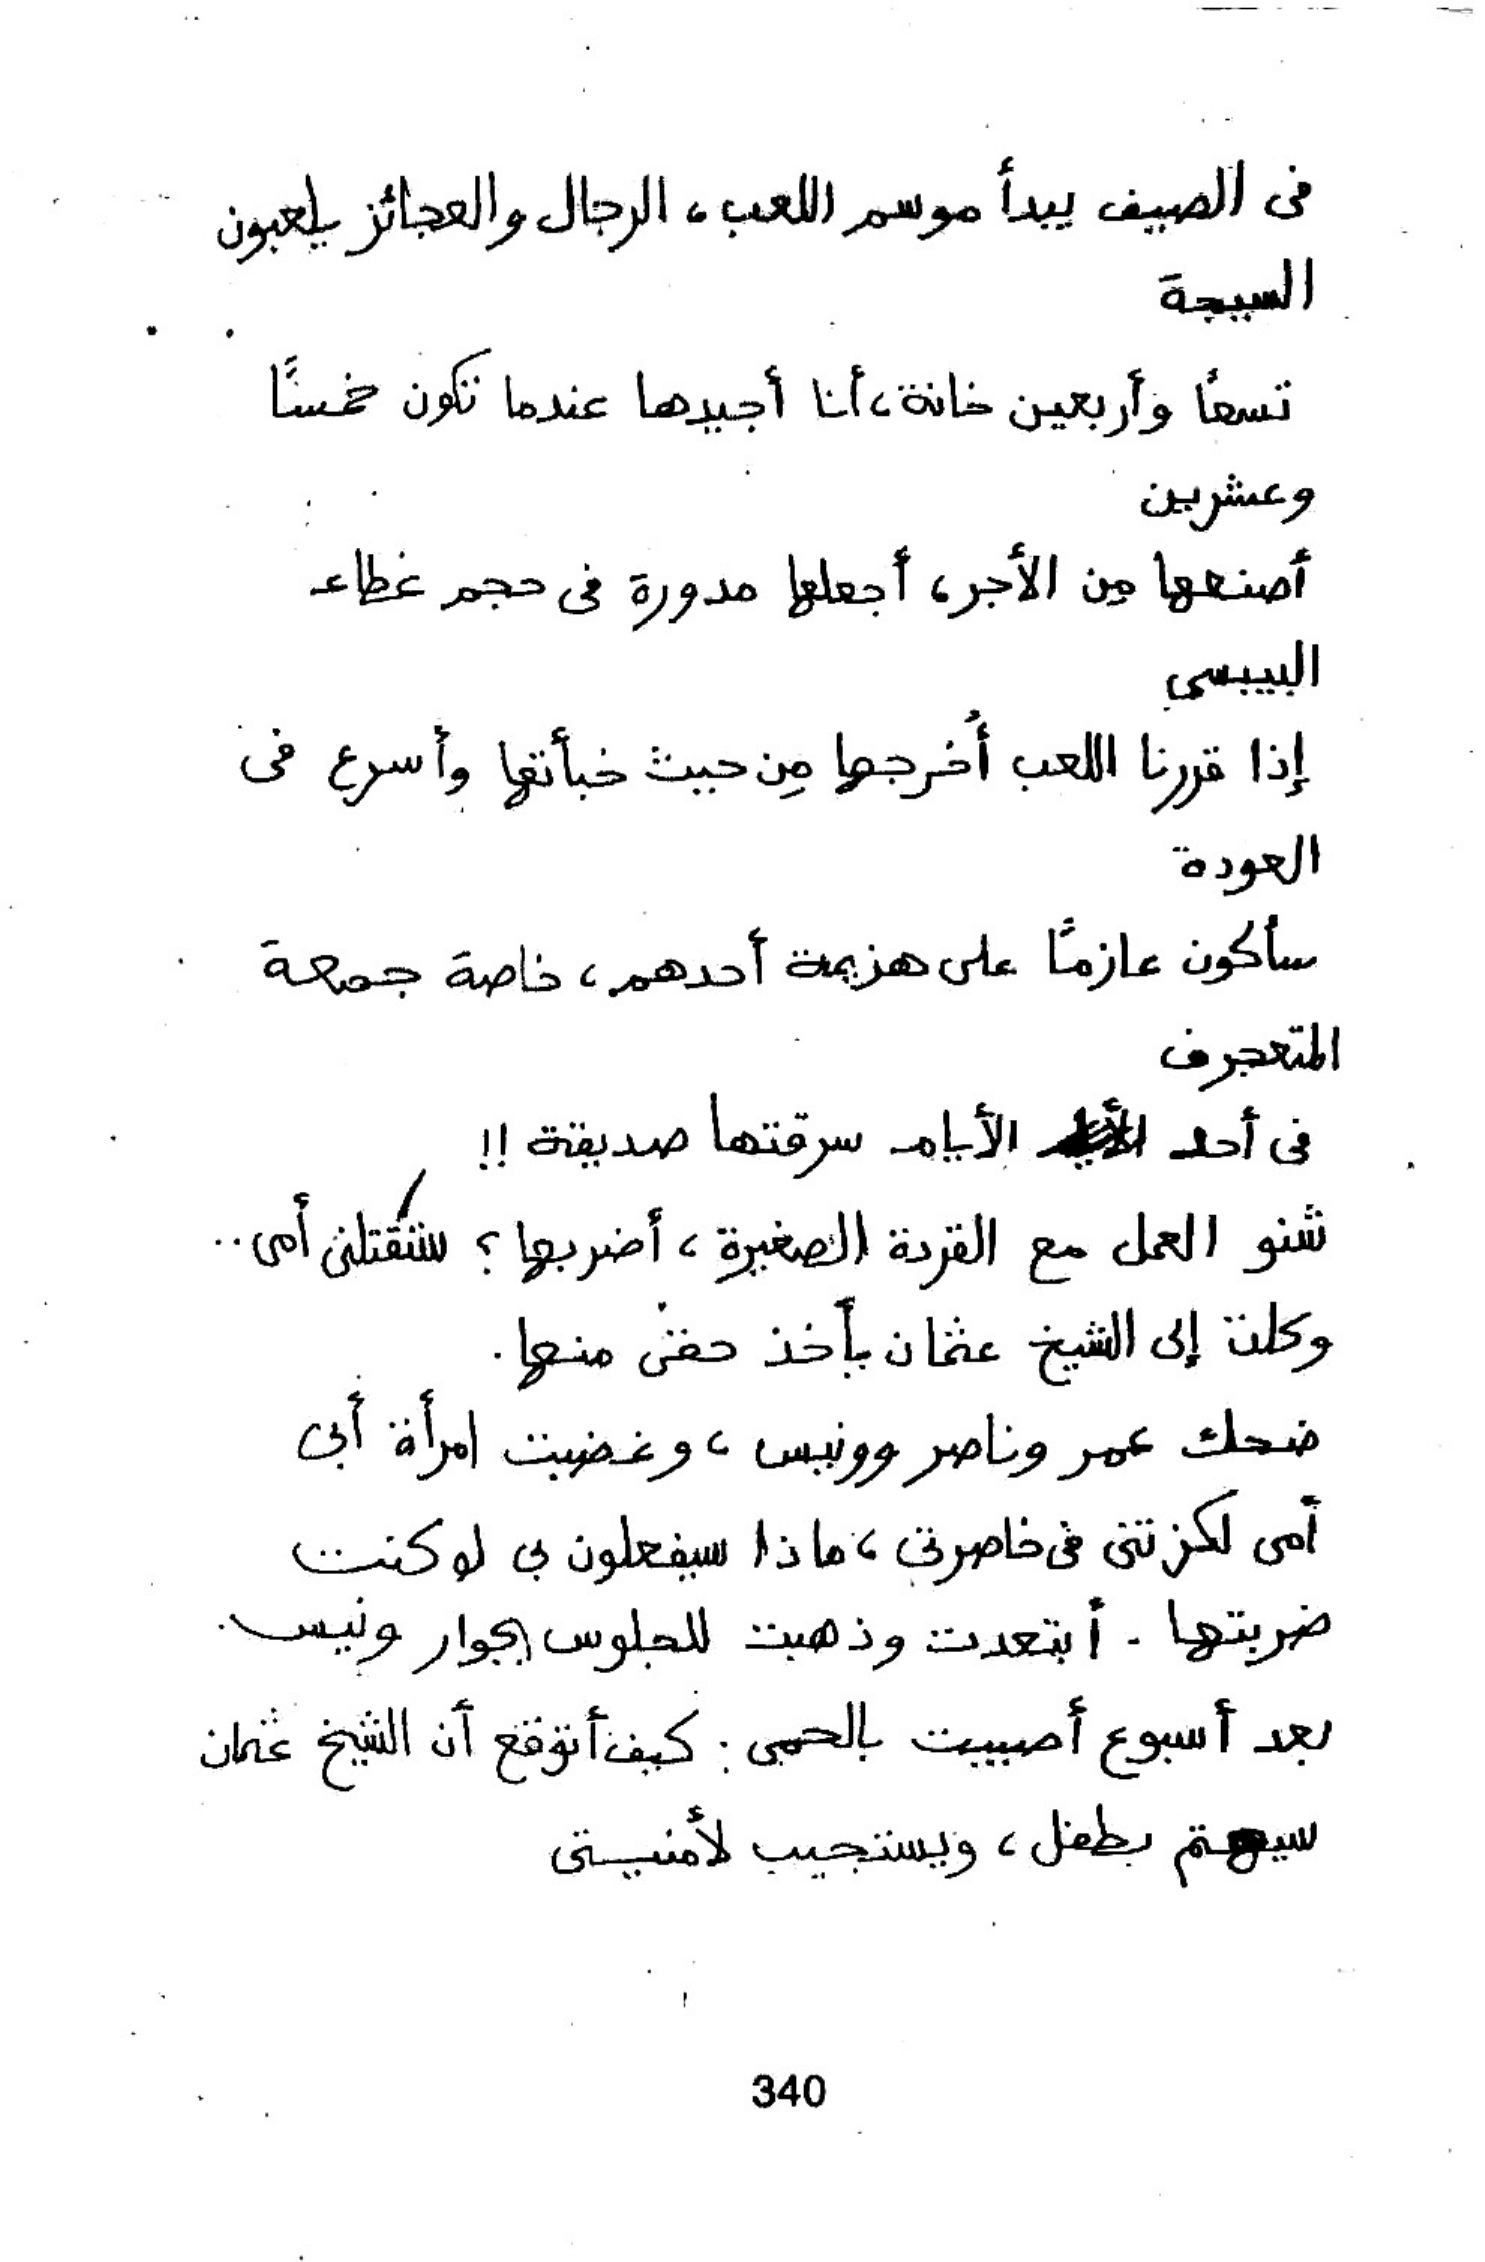 فى الصيف يبدأ موسم اللعب، الرجال والعجائز يلعبون
السيجة
تسعًا وأربعين خانة، أنا أجيدها عندما تكون خمسًا
وعشرين
أصنعها مِن الأجر، أجعلها مدورة فى حجم غطاء
البيبسى
إذا قررنا اللعب أُخرجها مِن حيث خبأتها وأسرع فى
العودة
سأكون عازمًا على هزيمة أحدهم، خاصة جمعة
المتعجرف
فى أحد الأيام سرقتها صديقة !!
شنو العمل مع القردة الصغيرة، أضربها؟ ستقتلنى أمى..
وكلت إلى الشيخ عثمان يأخذ حقى منها.
ضحك عمر وناصر وونيس، وغضبت امرأة أبى
أمى لكزتنى فى خاصرتى، ماذا سيفعلون بى لو كنت
ضربتها. أبتعدت وذهبت للجلوس بجوار ونيس.
بعد أسبوع أصيبت بالحمى: كيف أتوقع أن الشيخ عثمان
سيهتم بطفل، ويستجيب لأمنيتى
340